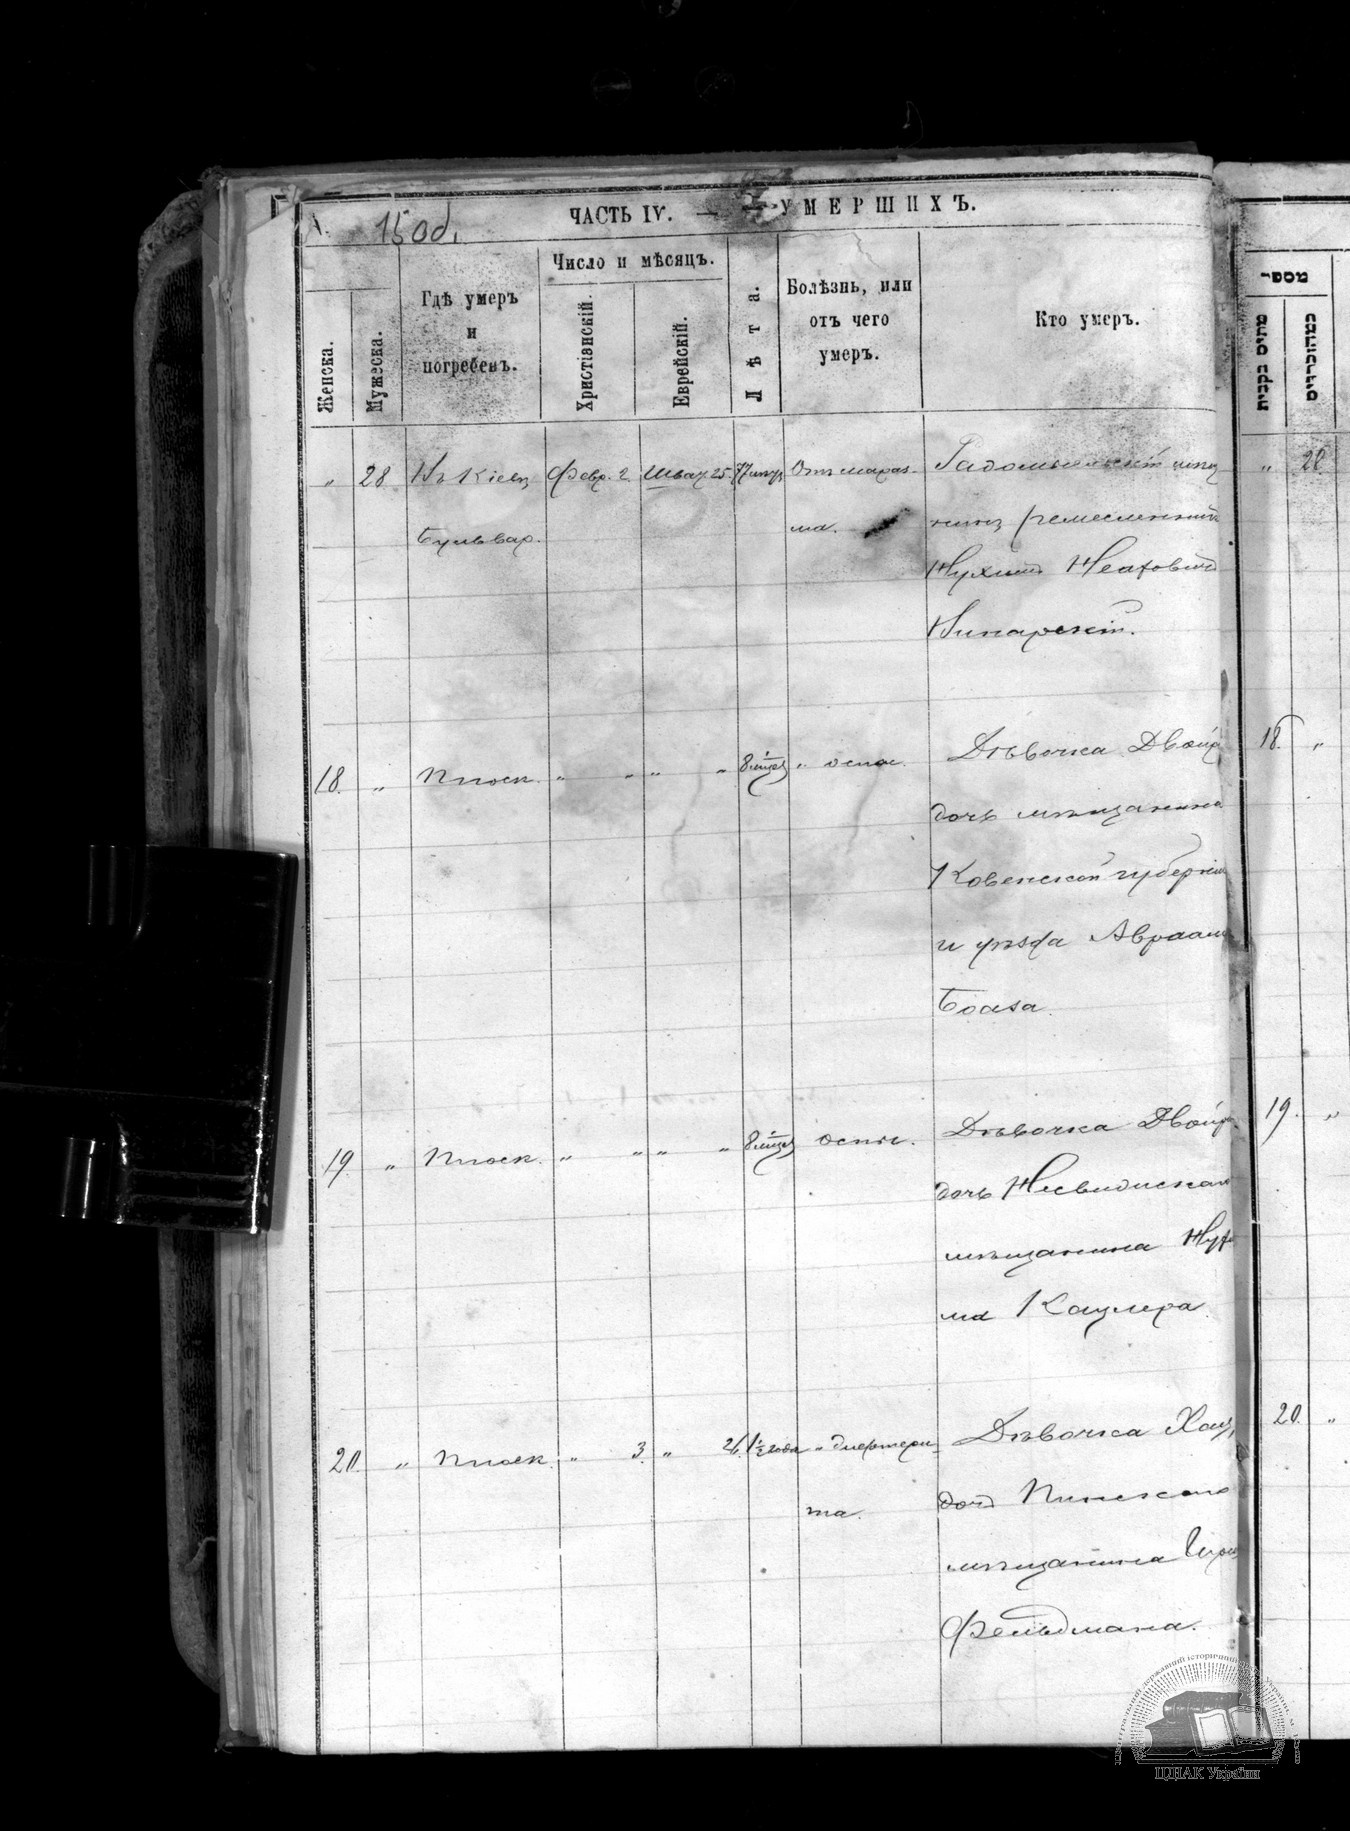 15 об.
ЧАСТЬ IV. — УМЕРШИХЪ.
Женска.
Мужеска.
Гдѣ умеръ
и
погребенъ.
Число и мѣсяцъ.
Христіанскій.
Еврейскій.
Лѣта.
Болѣзнь, или
отъ чего
умеръ.
Кто умеръ.
„ 28 Въ Кіевѣ Февр. 2. Шват 25. 77 Отъ мараз-
Бульвар.
ма.
Радомысльскій мѣщ
нинъ ремесленникъ
Нухимъ
18. „ Плоск. „ „ „ „ 8 „ оспы.
Дѣвочка Двойр
дочь мѣщанина
Ковенской губерніи
и уѣзда Авраам
Боаза.
19. „ Плоск. „ „ „ „ 8 оспы.
Дѣвочка Двойр
дочь
мѣщанина Нухи
ма Кацлера.
20. „ Плоск. „ 3. „ 26. 1½ года „ дифтери-
та.
Дѣвочка Хая,
дочь Пинскаго
мѣщанина
Фельдмана.
מספר
„ 28
18. „
19. „
20. „
ЦДІАК України